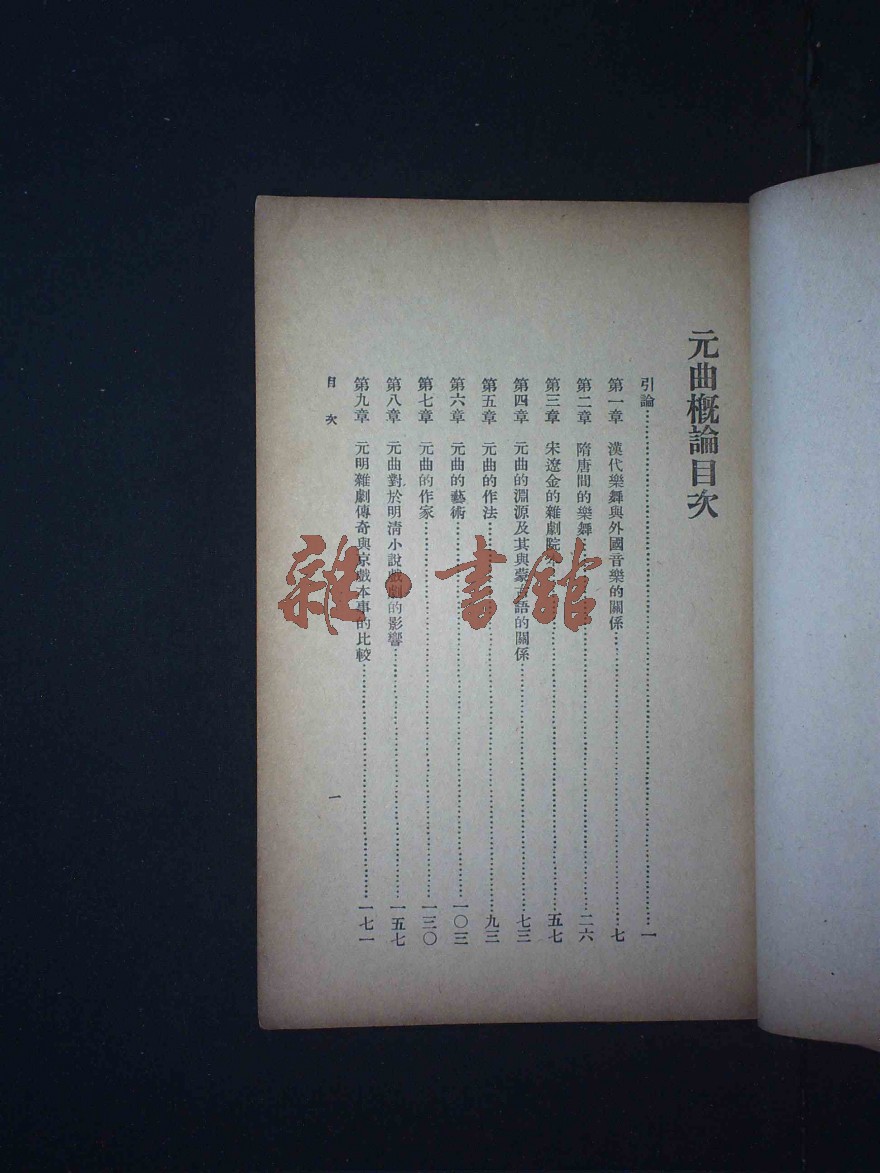 元曲概論目次
引論……一
第一章 漢代樂舞與外國音樂的關係……七
第二章 隋唐間的樂舞……二六
第三章 宋遼金的雜劇院……五七
第四章 元曲的淵源及其與蒙古語的關係……七三
第五章 元曲的作法……九三
第六章 元曲的藝術……一〇三
第七章 元曲的作家……一三〇
第八章 元曲對於明清小說戲劇的影響……一五七
第九章 元明雜劇傳奇與京戲本事的比較……一七一
目次
一
雜·書館